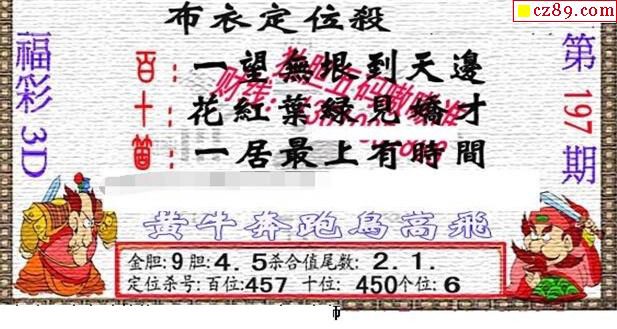 cz89.com
布衣定位殺
福彩3D
第197期
百:一望無垠到天邊
十:花紅葉緑見嬌才
個:一居最上有時間
黄牛奔跑鳥高飛
金胆:9胆:4.5杀合值尾数:2.1.
定位杀号:百位:457 十位:450个位:6